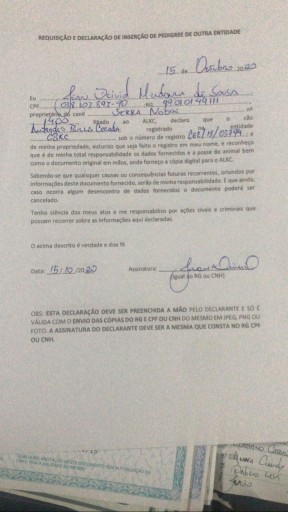 REQUISIÇÃO E DECLARAÇÃO DE INSERÇÃO DE PEDIGREE DE OUTRA ENTIDADE
15 de Outubro 2020
Eu de Sousa
CPF RG
proprietário do canil SERRA NOBRE nº
1400 filiado ao ALKC, declara que o cão
registrado entidade
CBKC sob o número de registro e
de minha propriedade, estando que seja feito o registro em meu nome, e reconheço
que é de minha total responsabilidade os dados fornecidos e a posse do animal bem
como o documento original em mãos, onde forneço a cópia digital para o ALKC.
Sabendo-se que quaisquer causas ou consequências futuras recorrentes, oriundos por
informações deste documento fornecido, serão de minha responsabilidade. E que ainda,
caso ocorra algum desencontro de dados o documento poderá ser
cancelado.
Tenho ciência dos meus atos e me responsabilizo por ações cíveis e criminais que
possam recorrer sobre as informações aqui declaradas.
O acima descrito é verdade e dou fé.
Data: 15/10/2020 Assinatura:
(Igual do RG ou CNH)
OBS: ESTA DECLARAÇÃO DEVE SER PREENCHIDA A MÃO PELO DECLARANTE E SÓ É
VÁLIDA COM O ENVIO DAS CÓPIAS DO RG E CPF OU CNH DO MESMO EM JPEG, PNG OU
FOTO. A ASSINATURA DO DECLARANTE DEVE SER A MESMA QUE CONSTA NO RG CPF
OU CNH.